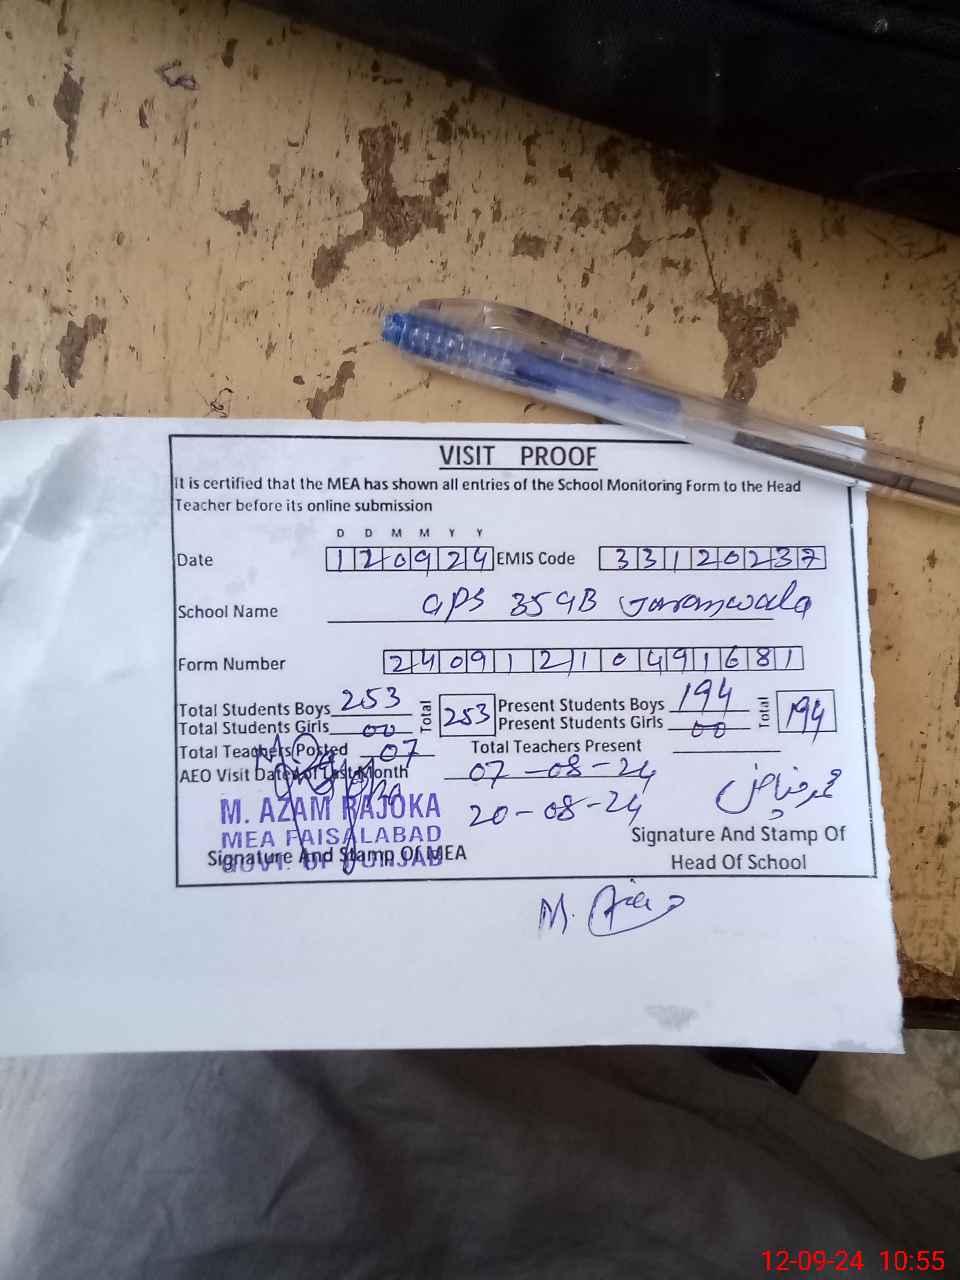 VISIT PROOF
It is certified that the MEA has shown all entries of the School Monitoring Form to the Head
Teacher before its online submission
D D M M Y Y
Date 120924 EMIS Code 33120237
School Name GPS 359B Jaranwala
Form Number 24091210491681
Total Students Boys 253 Total 253 Present Students Boys 194 Total 194
Total Students Girls 00 Present Students Girls 00
Total Teachers Posted 07 Total Teachers Present
AEO Visit Dates of Last Month 07-08-24
20-08-24
M. AZAM RAJOKA
MEA FAISALABAD
GOVT. OF PUNJAB
Signature And Stamp Of MEA
Signature And Stamp Of
Head Of School
M.
12-09-24 10:55